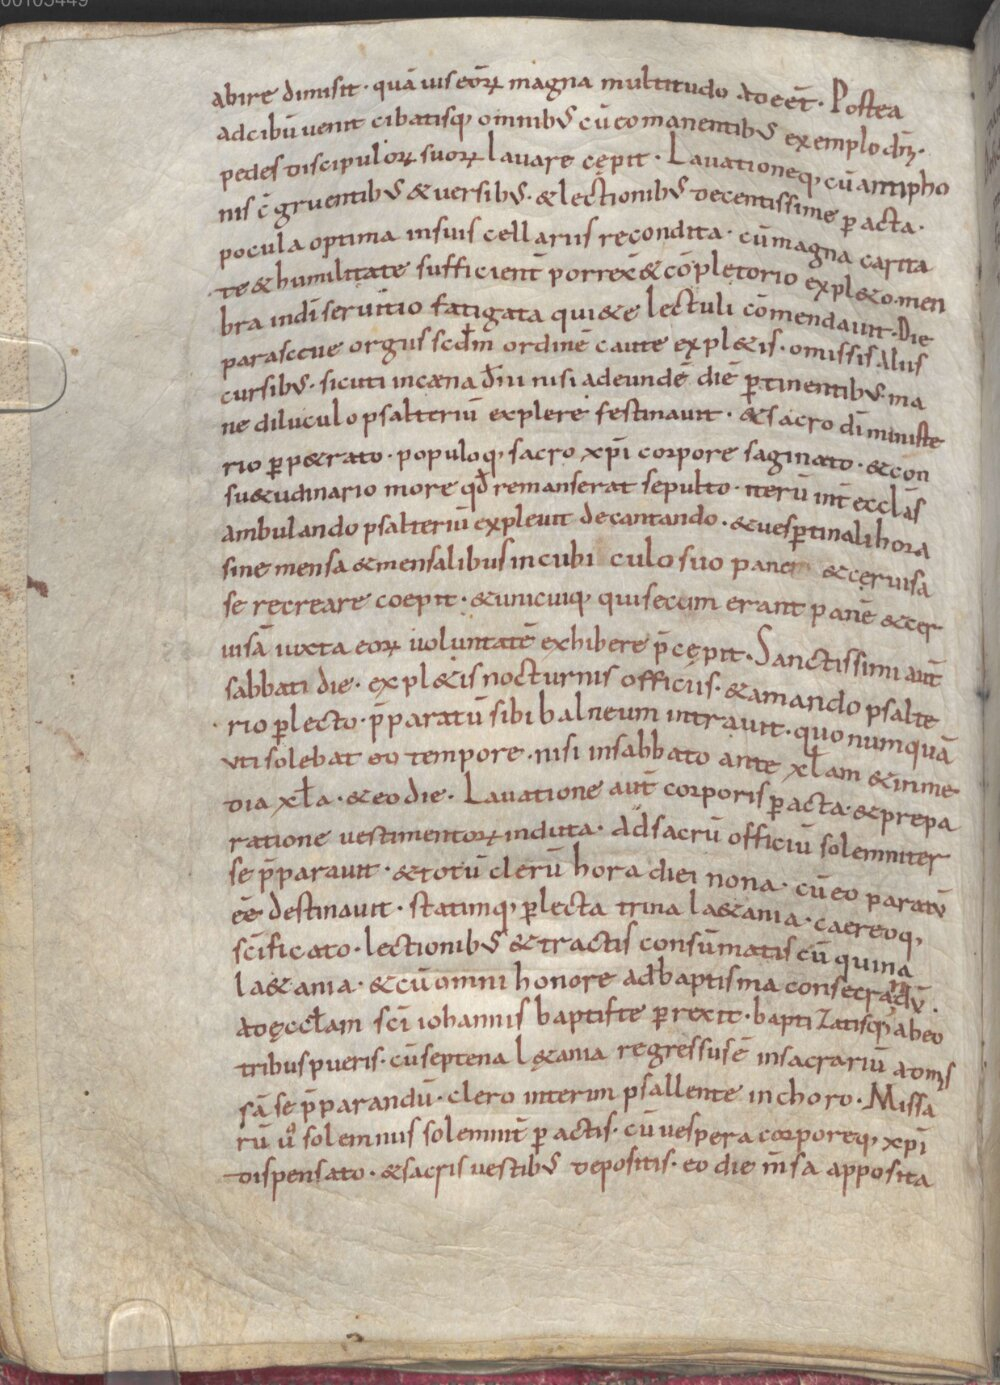 00105449
abire dimisit · quāuis eoꝝ magna multitudo adeēt · Postea
adcibū uenit cibatisq; omnibꝰ cū eo manentibꝰ exemplo dn̄i ·
pedes discipuloꝝ suoꝝ lauare cępit · Lauationeq; cū antipho
nis c̄gruentibꝰ & uersibꝰ · & lectionibꝰ decentissime ꝑacta ·
pocula optima insuis cellariis recondita · cū magna carita
te & humilitate sufficient̄ porrex̄ & cōpletorio expl&o · men
bra indi seruitio fatigata qui&e lectuli cōmendauit · Die
parasceue orgus scd̄m ordinē caute expl&is · omissis Aliis
cursibꝰ · sicuti incæna dn̄i nisi adeundē diē ꝑtinentibꝰ · ma
ne diluculo psalteriū explere festinauit · & sacro di ministe
rio ꝑp&rato · populoq; sacro xp̄i corpore saginato · & con
su&udinario more qd̄ remanserat sepulto · iterū int̄ ecclās
ambulando psalteriū expleuit decantando · & uesꝑtinali hora
sine mensa & mensalibus in cubi culo suo pane & ceruisa
se recreare coepit · & unicuiq; qui secum erant panē & cer
uisā iuxta eoꝝ uoluntatē exhibere p̄cępit · Sanctissimi aut̄
sabbati die · expl&is nocturnis officiis · & amando psalte
rio ꝑlecto · p̄paratū sibi balneum intrauit · quo numquā
uti solebat eo tempore · nisi insabbato ante xl̄am & in me
dia xl̄a · & eo die · Lauatione aut̄ corporis ꝑacta · & prepa
ratione uestimentoꝝ induta · ad sacrū officiū solemniter
se p̄parauit · & totū clerū hora diei nona · cū eo paratū
eē destinauit · statimq; ꝑlecta trina la&ania · caereoq;
scīficato · lectionibꝰ & tractis consūmatis cū quina
la&ania · & cū omni honore adbaptisma consecrandū ·
ad ęccl̄am scī iohannis baptiste ꝑrexit · baptizatisq; abeo
tribus pueris · cū septena l&ania regressus ē insacrariū ad mis
sā se p̄parandū · clero interim psallente in choro · Missa
rū uº solemniis solemnit̄ ꝑactis · cū uespera corporeq; xp̄i
dispensato · & sacris uestibꝰ depositis · eo die m̄sa apposita